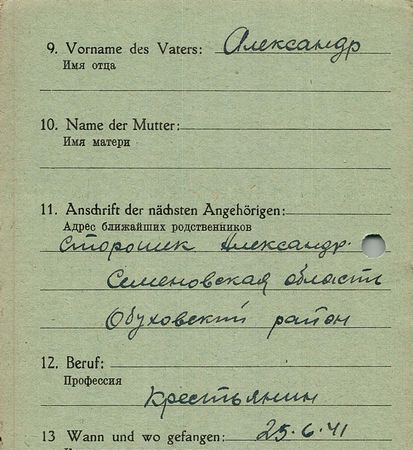 9. Vorname des Vaters: Александр
Имя отца
10. Name der Mutter:
Имя матери
11. Anschrift der nächsten Angehörigen:
Адрес ближайших родственников
Сторошек Александр
Семеновская области
Обуховский район
12. Beruf:
Профессия
крестьянин
13 Wann und wo gefangen: 25.6.41